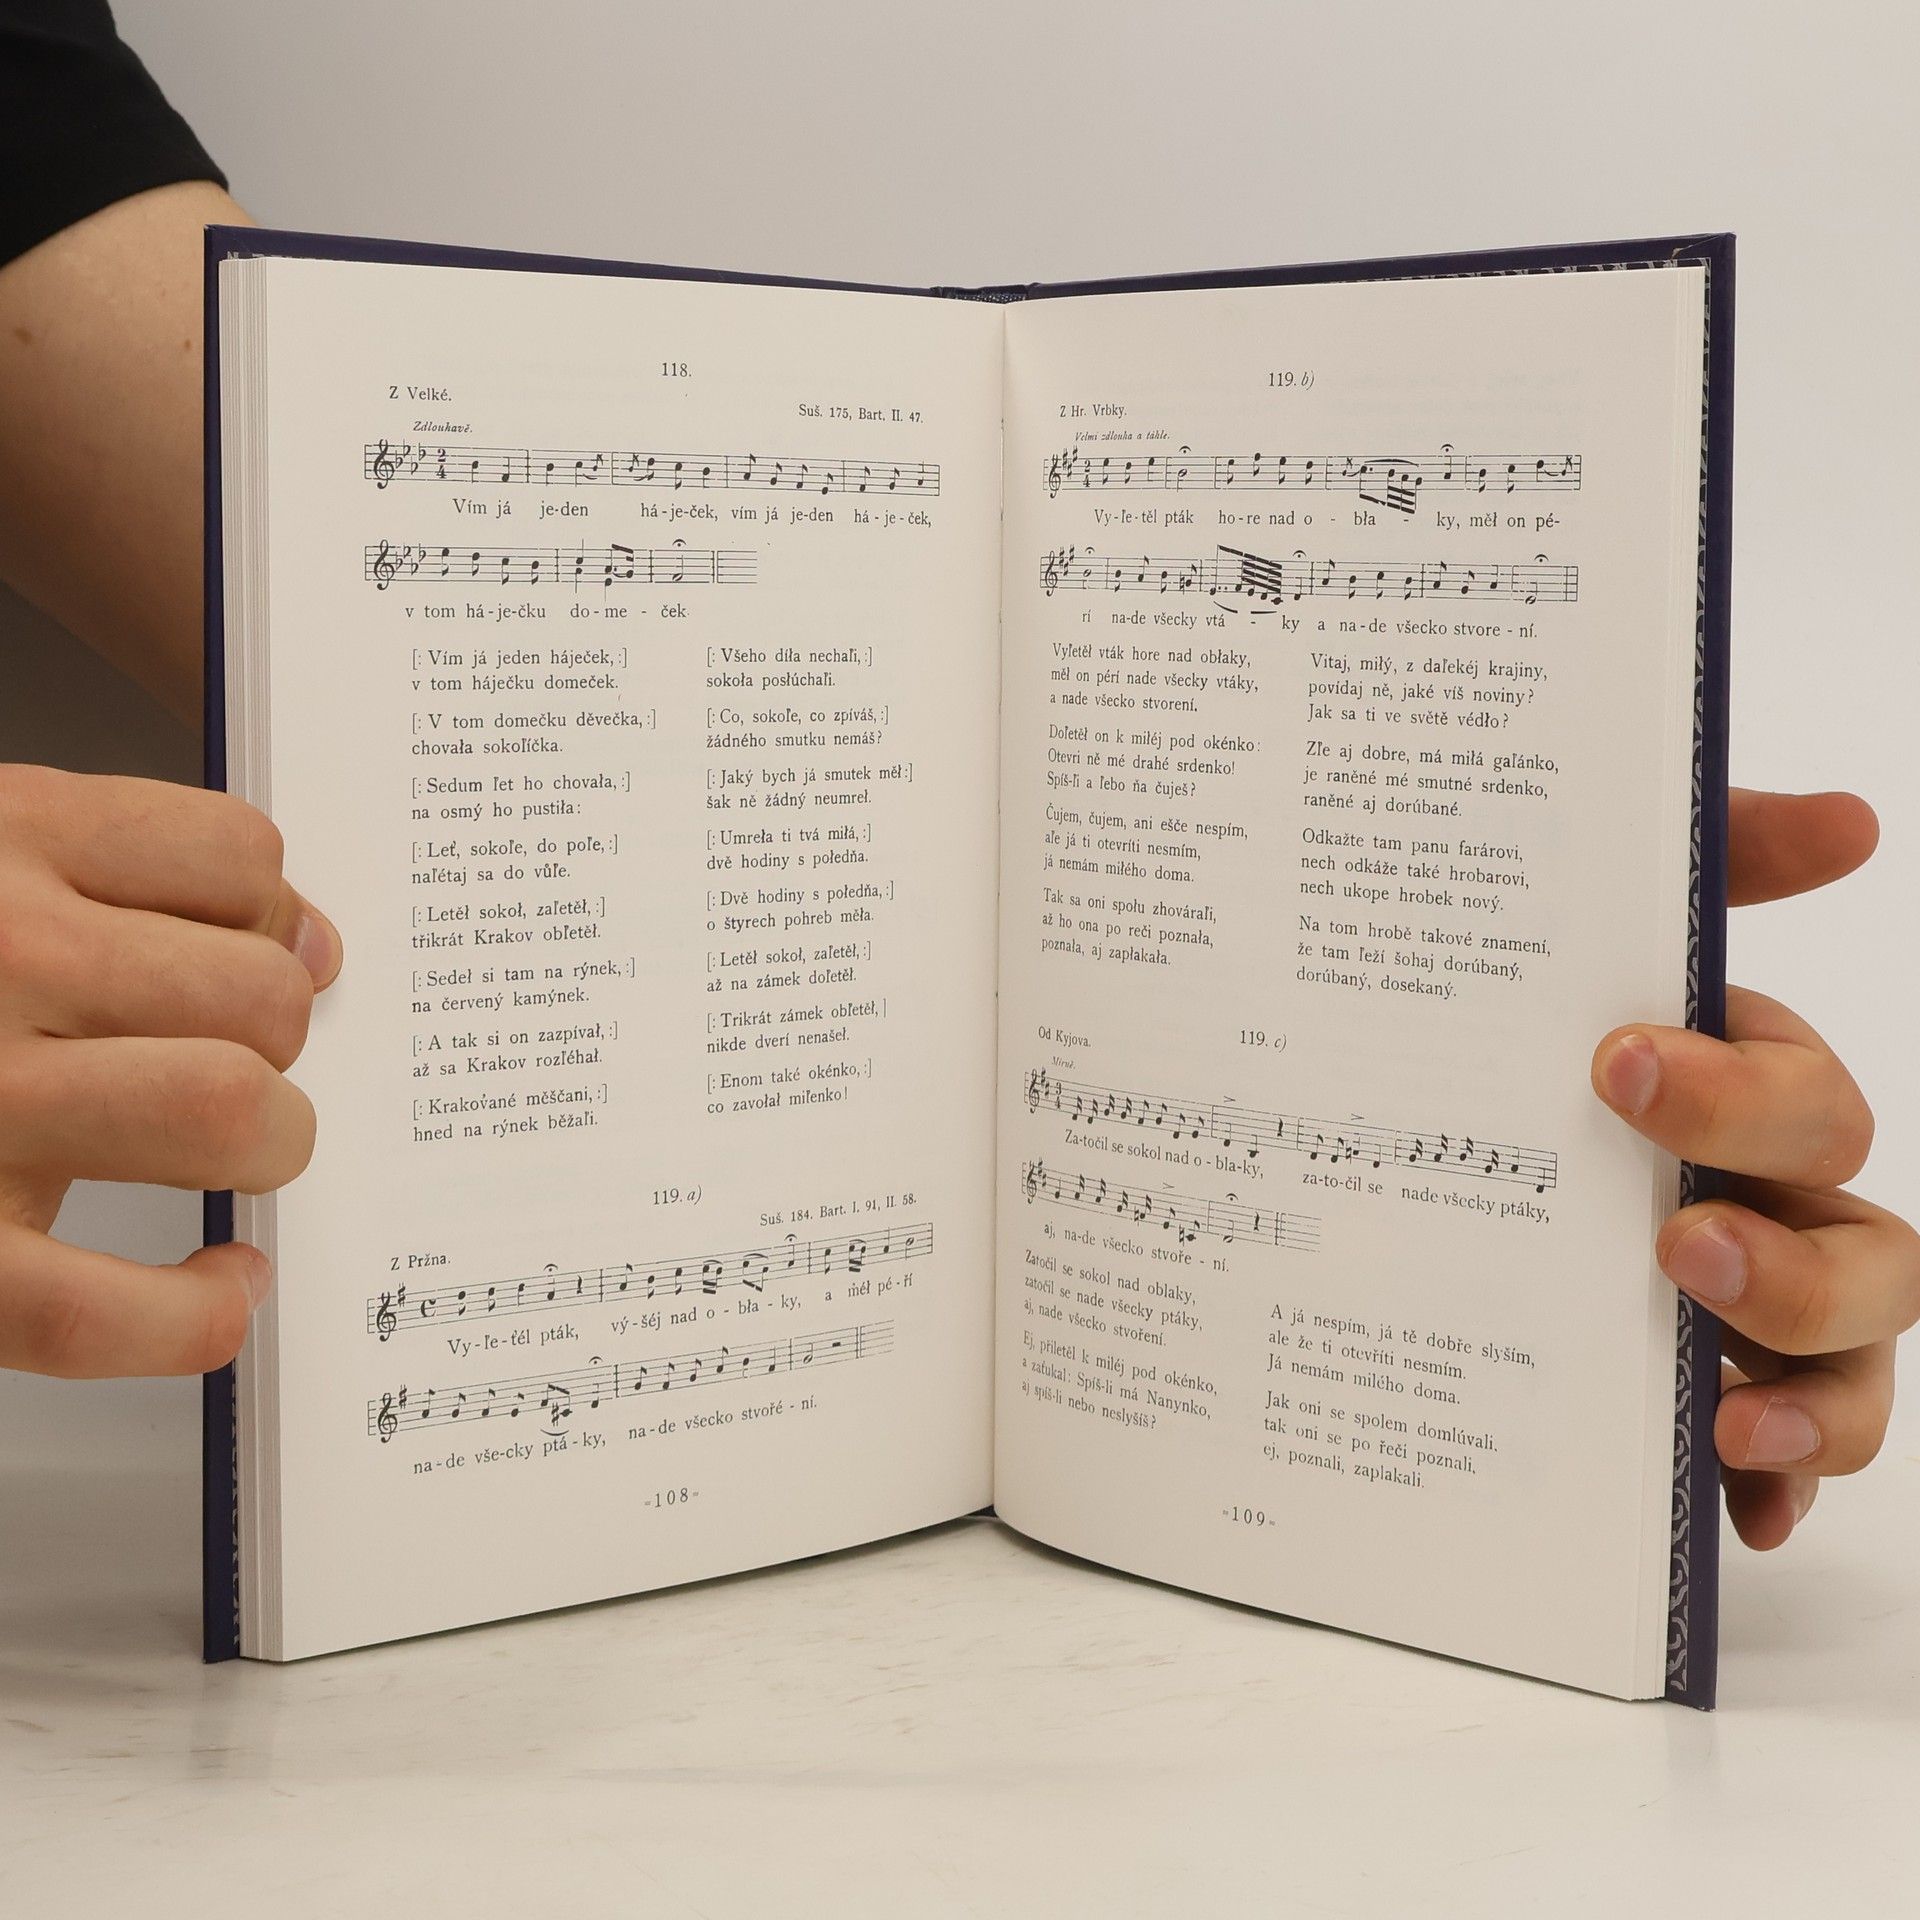 118.
Z Velké.
Suš. 175, Bart. II. 47.
Zdlouhavě.
Vím já je-den há-je-ček, vím já je-den há-je-ček,
v tom há-je-čku do-me-ček.
[: Vím já jeden háječek, :]
v tom háječku domeček.
[: V tom domečku děvečka, :]
chovała sokolíčka.
[: Sedum ľet ho chovała, :]
na osmý ho pustiła:
[: Leť, sokoľe, do poľe, :]
naľétaj sa do vůľe.
[: Letěł sokoł, zaľetěł, :]
třikrát Krakov obľetěł.
[: Sedeł si tam na rýnek, :]
na červený kamýnek.
[: A tak si on zazpívał, :]
až sa Krakov rozľéhał.
[: Krakované měščani, :]
hned na rýnek běžaľi.
[: Všeho díła nechaľi, :]
sokoła posłúchaľi.
[: Co, sokoľe, co zpíváš, :]
žádného smutku nemáš?
[: Jaký bych já smutek měł :]
šak ně žádný neumreł.
[: Umreła ti tvá miłá, :]
dvě hodiny s połedňa.
[: Dvě hodiny s połedňa, :]
o štyrech pohreb měła.
[: Letěł sokoł, zaľetěł, :]
až na zámek doľetěł.
[: Trikrát zámek obľetěł, ]
nikde dverí nenašeł.
[: Enom také okénko, :]
co zavołał miľenko!
119. a)
Suš. 184. Bart. I. 91, II. 58.
Z Pržna.
Vy-ľe-ťél pták, vý-šéj nad o-bła-ky, a měł pé-ří
na-de vše-cky ptá-ky, na-de všecko stvoře-ní.
-108-
119. b)
Z Hr. Vrbky.
Velmi zdlouha a táhle.
Vy-ľe-těl pták ho-re nad o-bła-ky, měł on pé-
rí na-de všecky vtá-ky a na-de všecko stvore-ní.
Vyľetěł vták hore nad obłaky,
měł on pérí nade všecky vtáky,
a nade všecko stvorení.
Doľetěł on k miłéj pod okénko:
Otevri ně mé drahé srdenko!
Spíš-ľi a ľebo ňa čuješ?
Čujem, čujem, ani ešče nespím,
aľe já ti otevríti nesmím,
já nemám miłého doma.
Tak sa oni społu zhováraľi,
až ho ona po reči poznała,
poznała, aj zapłakała.
Vitaj, miłý, z daľekéj krajiny,
povídaj ně, jaké víš noviny?
Jak sa ti ve světě védło?
Zľe aj dobre, má miłá gaľánko,
je raněné mé smutné srdenko,
raněné aj dorúbané.
Odkažte tam panu farárovi,
nech odkáže také hrobarovi,
nech ukope hrobek nový.
Na tom hrobě takové znamení,
že tam ľeží šohaj dorúbaný,
dorúbaný, dosekaný.
119. c)
Od Kyjova.
Mírně.
Za-točil se sokol nad o-bla-ky, za-to-čil se nade všecky ptáky,
aj, na-de všecko stvoře-ní.
Zatočil se sokol nad oblaky,
zatočil se nade všecky ptáky,
aj, nade všecko stvoření.
Ej, přiletěl k miléj pod okénko,
a zaťukal: Spíš-li má Nanynko,
aj spíš-li nebo neslyšíš?
A já nespím, já tě dobře slyším,
ale že ti otevříti nesmím.
Já nemám milého doma.
Jak oni se spolem domlúvali,
tak oni se po řeči poznali,
ej, poznali, zaplakali.
-109-